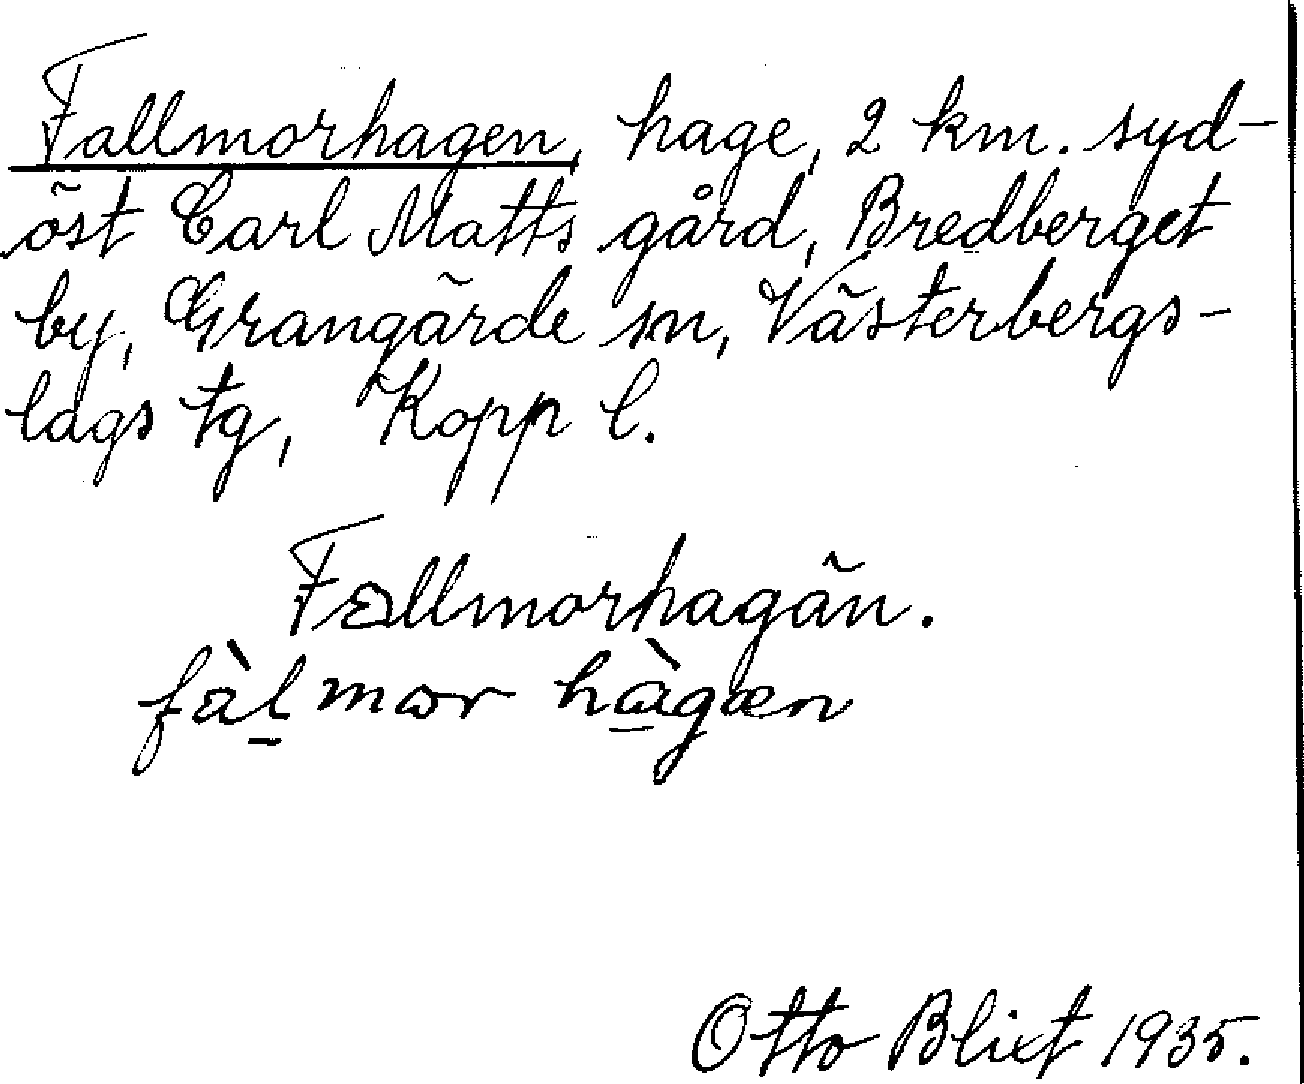 Fallmorhagen, hage, 2 km. syd-
öst Carl Matts gård, Bredberget
by, Grangärde sn, Västerbergs-
lags tg, Kopp l.
Fallmorhagän.
fàl̠mɷr hɑ̠̀gæn
Otto Blixt 1935.